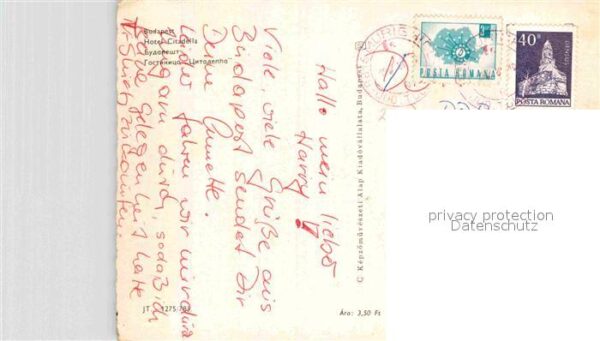 Budapest
Hotel Citadella
Будапешт
Гостиница Цитаделла
Hallo mein liebo
Harry!
Viele, viele Grüße aus
Budapest sendet Dir
Deine Annette.
Leider fahren wir nur durch
Ungarn durch, sodaß ich
keine Gelegenheit hatte
POSTA ROMANA
40 B
POSTA ROMANA
© Képzőművészeti Alap Kiadóvállalata, Budapest
privacy protection
Datenschutz
Ára: 3,50 Ft